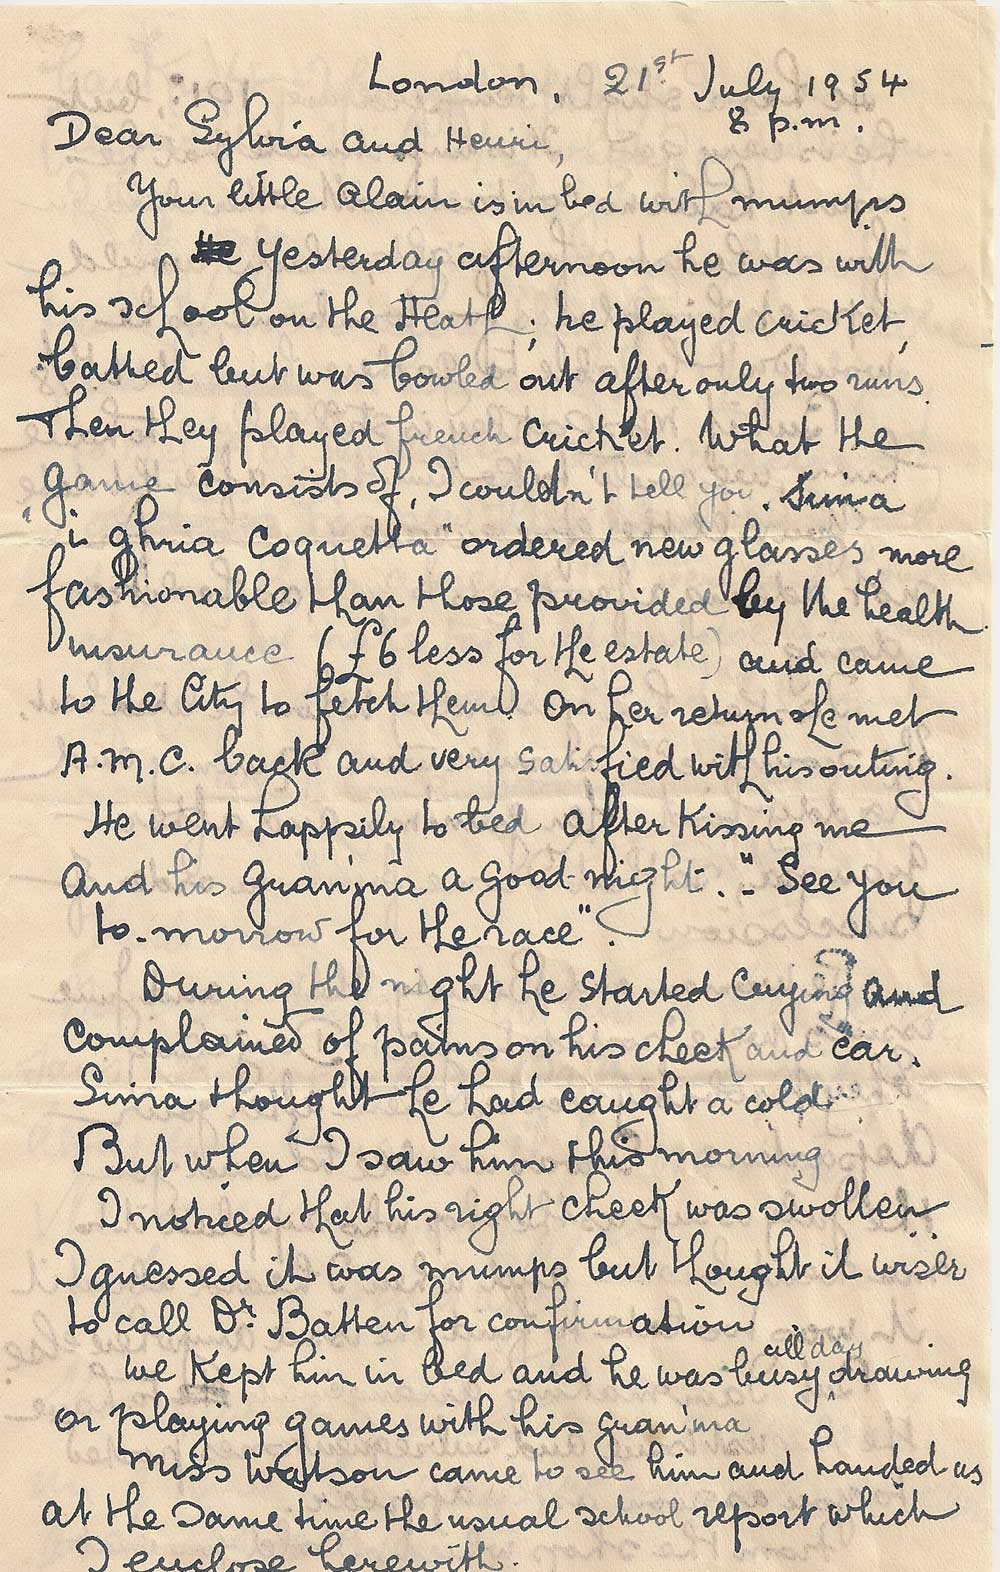 London, 21st July 1954
8 p.m.
Dear Sylvia and Henri,
Your little Alain is in bed with mumps
Yesterday afternoon he was with
his school on the Heath; he played cricket,
batted but was bowled out after only two runs.
Then they played french cricket. What the
game consists of, I couldn't tell you. Sima
"i ghria coquetta" ordered new glasses more
fashionable than those provided by the health
insurance (£6 less for the estate) and came
to the City to fetch them. On her return she met
A.M.C. back and very satisfied with his outing.
He went happily to bed after kissing me
and his gran'ma a good-night. - "See you
to-morrow for the race".
During the night he started crying and
complained of pains on his cheek and ear.
Sima thought he had caught a cold
But when I saw him this morning
I noticed that his right cheek was swollen
I guessed it was mumps but thought it wiser
to call Dr Batten for confirmation
all day
we kept him in bed and he was busy drawing
or playing games with his gran'ma
Miss Watson came to see him and handed us
at the same time the usual school report which
I enclose herewith.